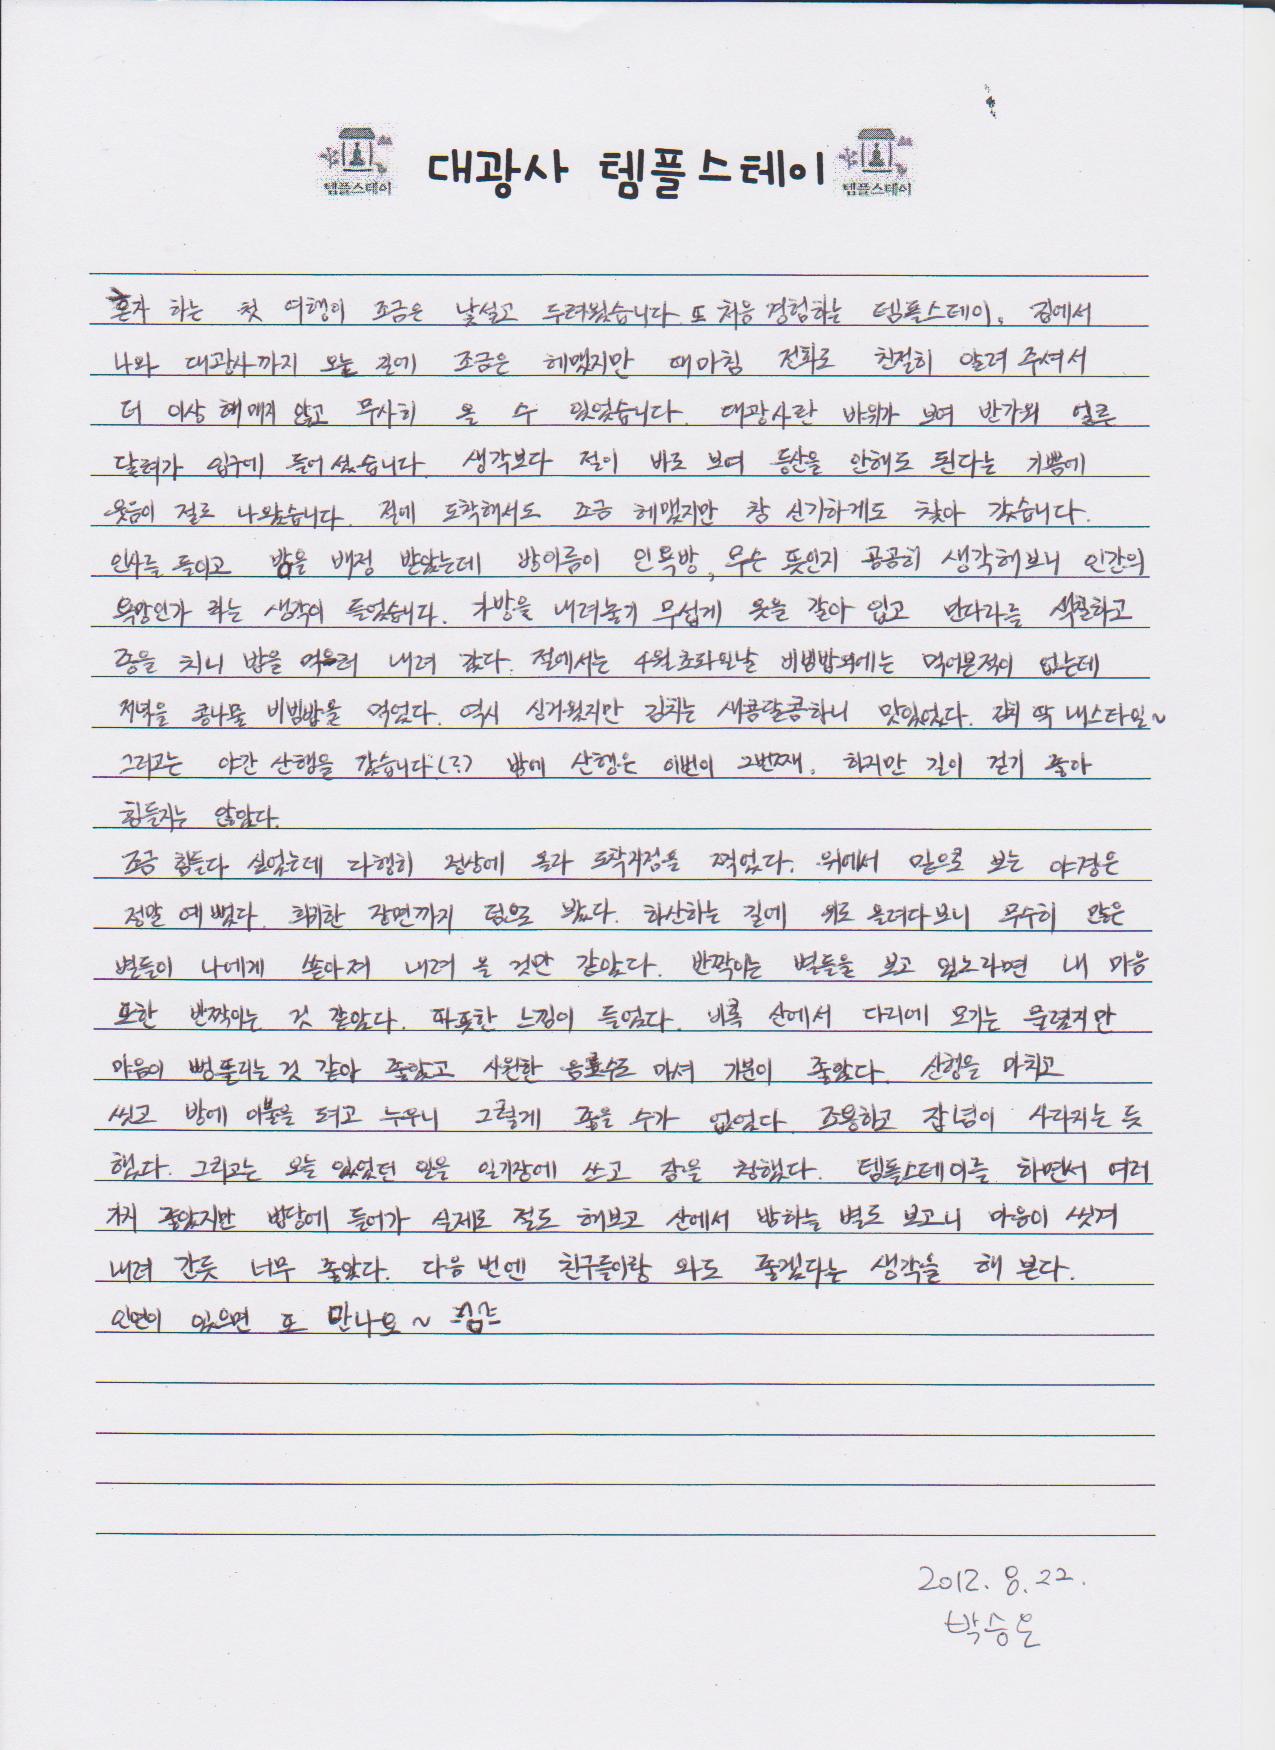 템플스테이 대광사 템플스테이 템플스테이
혼자 하는 첫 여행이 조금은 낯설고 두려웠습니다. 또 처음 경험하는 템플스테이. 집에서
나와 대광사까지 오는 길에 조금은 헤맸지만 때마침 전화로 친절히 알려 주셔서
더 이상 헤매지 않고 무사히 올 수 있었습니다. 대광사란 바위가 보여 반가워 얼른
달려가 입구에 들어 섰습니다. 생각보다 절이 바로 보여 등산을 안해도 된다는 기쁨에
웃음이 절로 나왔습니다. 절에 도착해서도 조금 헤맸지만 참 신기하게도 찾아 갔습니다.
인사를 들이고 방을 배정 받았는데 방이름이 인욕방, 무슨 뜻인지 곰곰히 생각해보니 인간의
욕망인가 라는 생각이 들었습니다. 가방을 내려놓기 무섭게 옷을 갈아 입고 만다라를 색칠하고
종을 치니 밥을 먹으러 내려 갔다. 절에서는 4월 초파일날 비빔밥외에는 먹어본적이 없는데
저녁을 콩나물 비빔밥을 먹었다. 역시 싱거웠지만 김치는 새콤달콤하니 맛있었다. 딱 내스타일~
그리고는 야간 산행을 갔습니다.(?) 밤에 산행은 이번이 2번째. 하지만 길이 걷기 좋아
힘들지는 않았다.
조금 힘들다 싶었는데 다행히 정상에 올라 도착지점을 찍었다. 위에서 밑으로 보는 야경은
정말 예뻤다. 희귀한 장면까지 덤으로 봤다. 하산하는 길에 위로 올려다보니 무수히 많은
별들이 나에게 쏟아져 내려 올 것만 같았다. 반짝이는 별들을 보고 있노라면 내 마음
또한 반짝이는 것 같았다. 따뜻한 느낌이 들었다. 비록 산에서 다리에 모기는 물렸지만
마음이 뻥뚫리는 것 같아 좋았고 시원한 음료수도 마셔 기분이 좋았다. 산행을 마치고
씻고 방에 이불을 펴고 누우니 그렇게 좋을 수가 없었다. 조용하고 잡념이 사라지는 듯
했다. 그리고는 오늘 있었던 일을 일기장에 쓰고 잠을 청했다. 템플스테이를 하면서 여러
가지 좋았지만 법당에 들어가 실제로 절도 해보고 산에서 밤하늘 별도 보고니 마음이 씻겨
내려 간듯 너무 좋았다. 다음 번엔 친구들이랑 와도 좋겠다는 생각을 해 본다.
인연이 있으면 또 만나요~
2012. 8. 22.
박승은